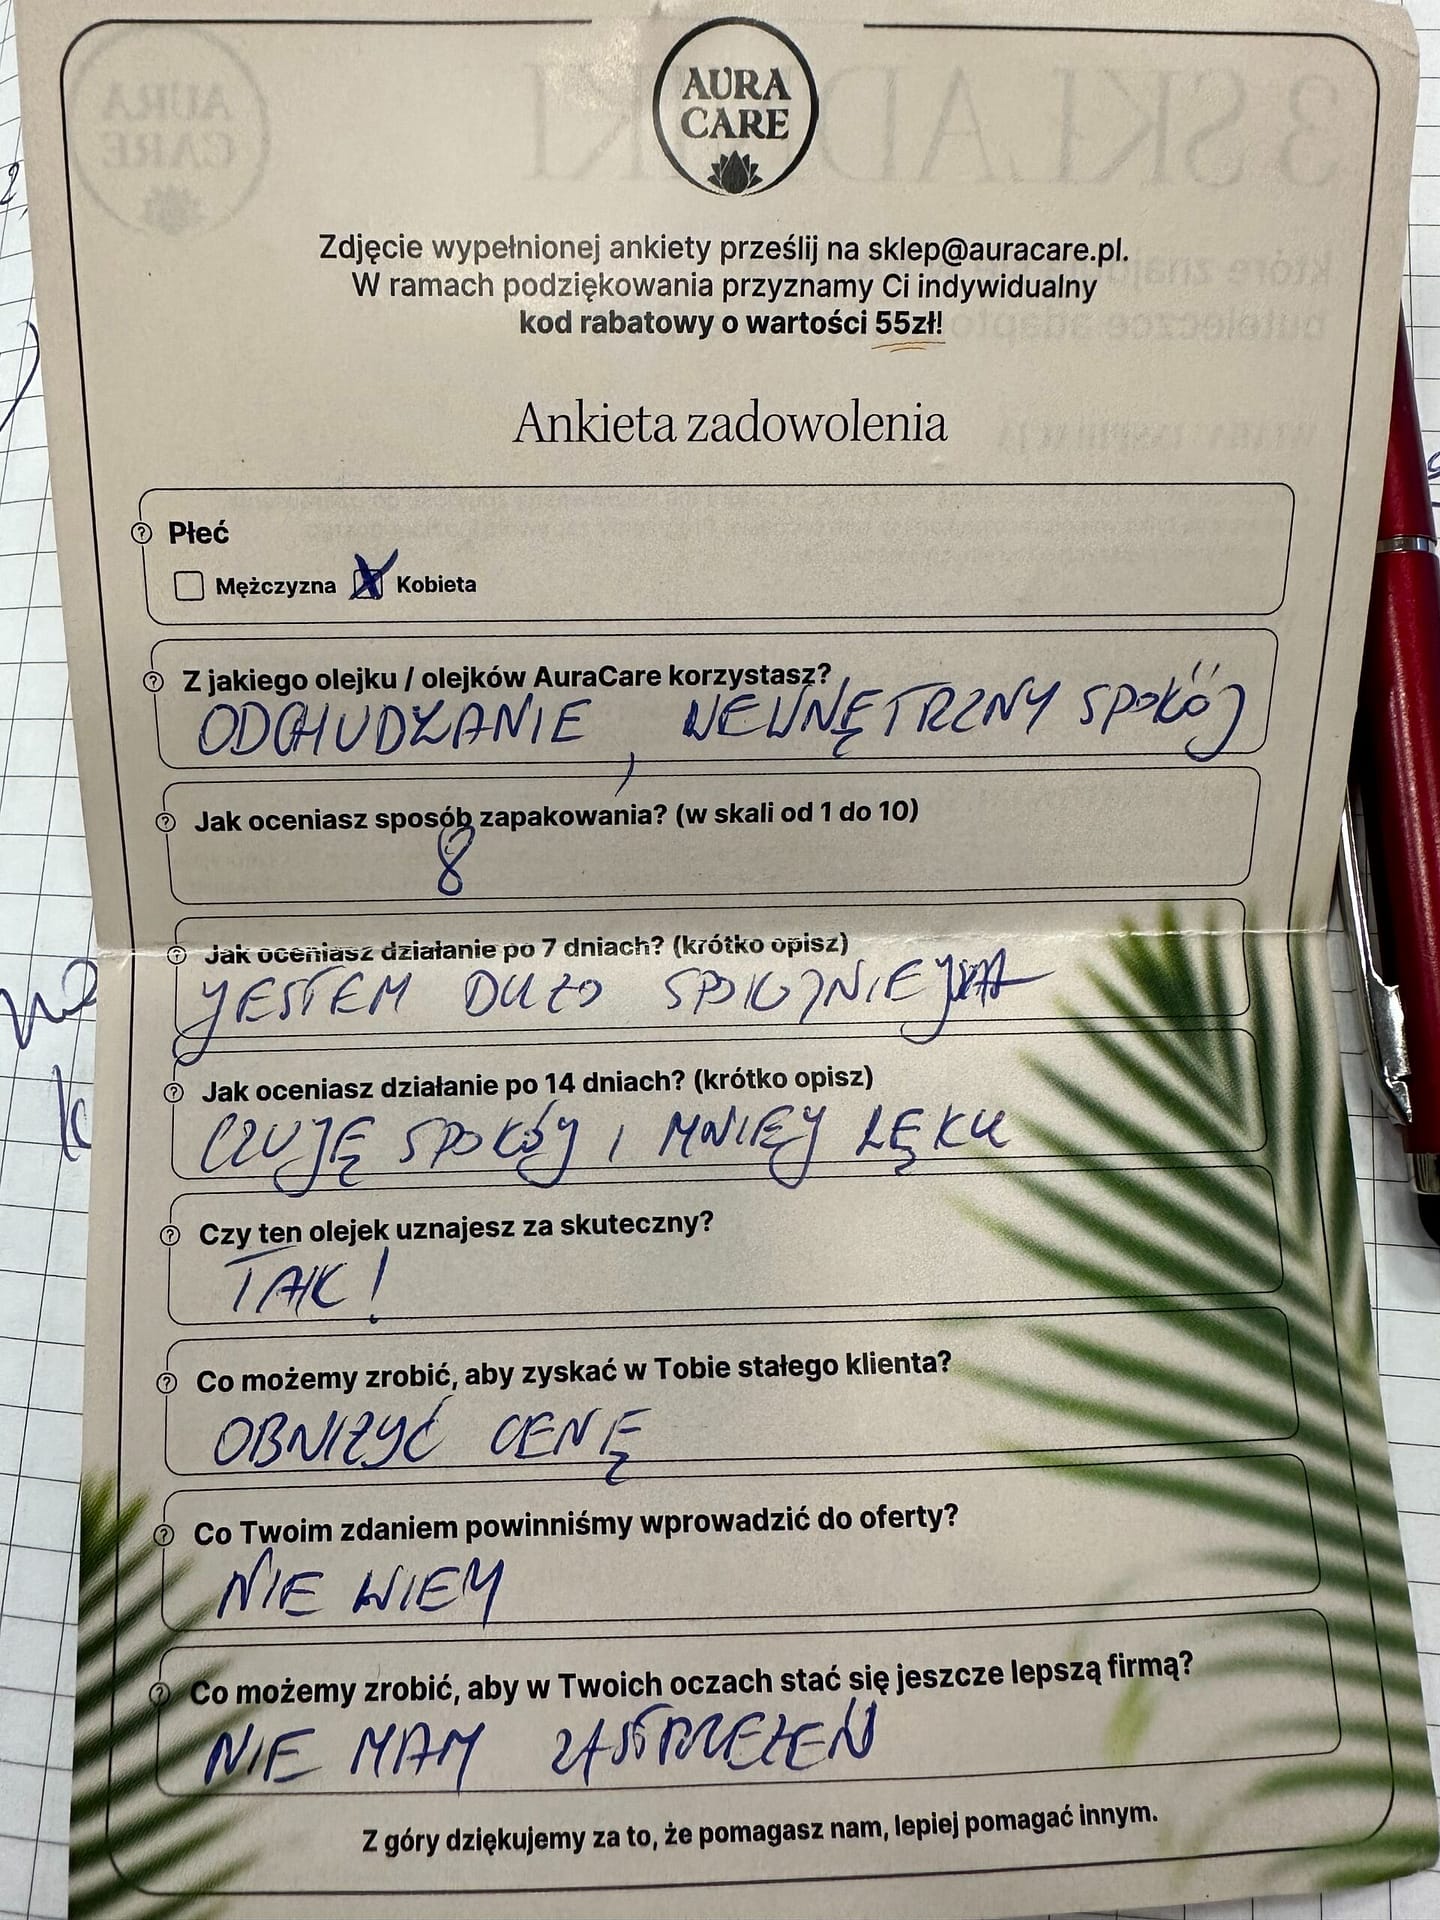 AURA
CARE
Zdjęcie wypełnionej ankiety prześlij na sklep@auracare.pl.
W ramach podziękowania przyznamy Ci indywidualny
kod rabatowy o wartości 55zł!
Ankieta zadowolenia
Płeć
Mężczyzna X Kobieta
Z jakiego olejku / olejków AuraCare korzystasz?
ODCHUDZANIE, WEWNĘTRZNY SPOKÓJ
Jak oceniasz sposób zapakowania? (w skali od 1 do 10)
8
Jak oceniasz działanie po 7 dniach? (krótko opisz)
JESTEM DUŻO SPOKOJNIEJSZA
Jak oceniasz działanie po 14 dniach? (krótko opisz)
CZUJĘ SPOKÓJ I MNIEJ LĘKU
Czy ten olejek uznajesz za skuteczny?
TAK!
Co możemy zrobić, aby zyskać w Tobie stałego klienta?
OBNIŻYĆ CENĘ
Co Twoim zdaniem powinniśmy wprowadzić do oferty?
NIE WIEM
Co możemy zrobić, aby w Twoich oczach stać się jeszcze lepszą firmą?
NIE MAM ZASTRZEŻEŃ
Z góry dziękujemy za to, że pomagasz nam, lepiej pomagać innym.